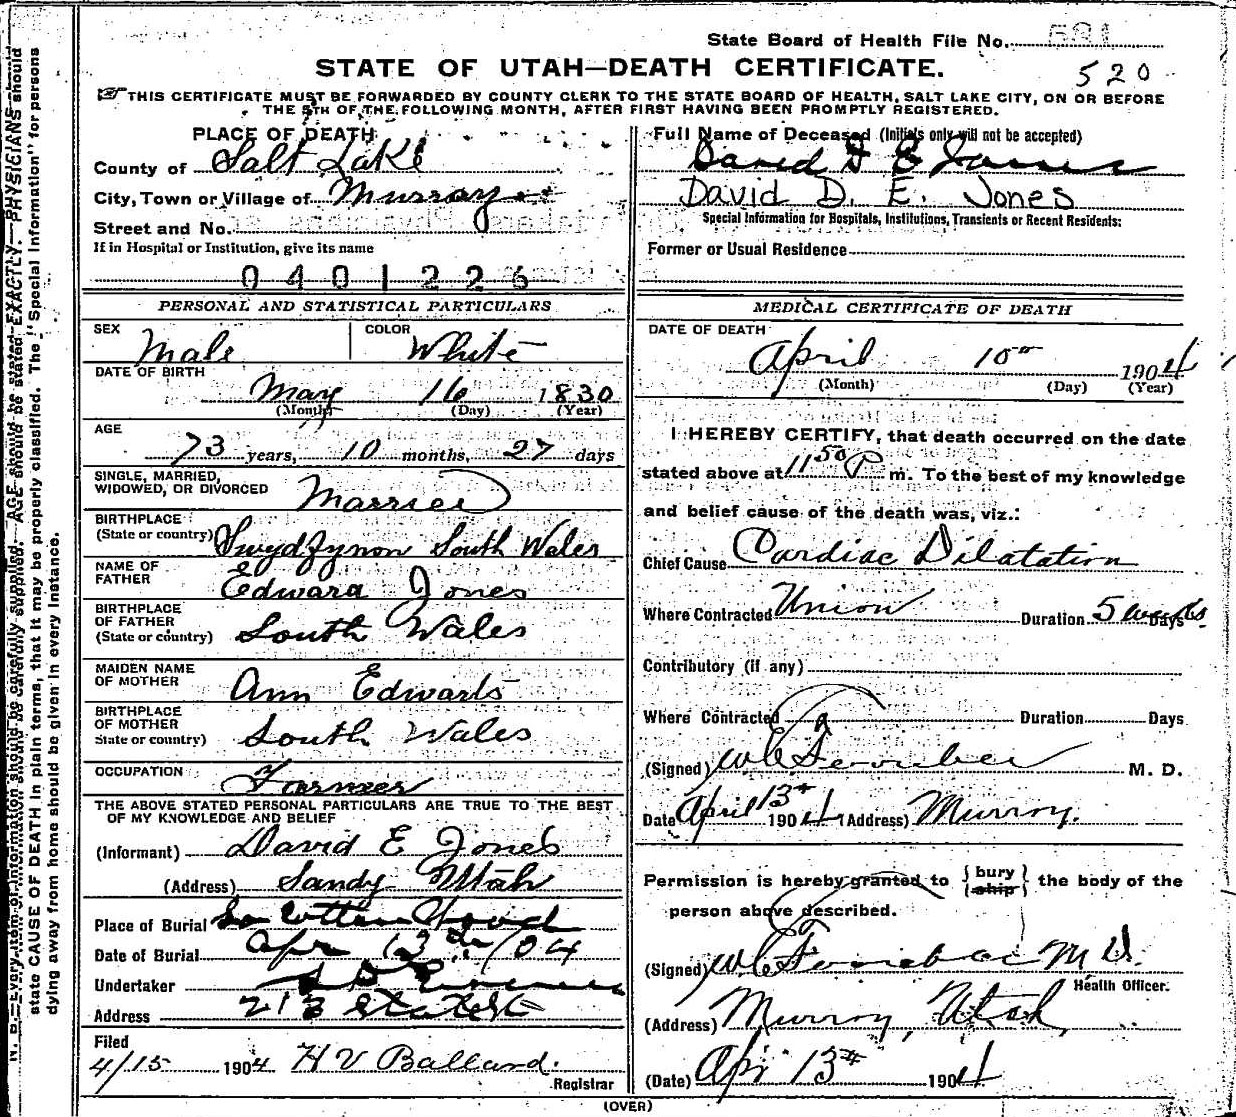 State Board of Health File No. 591
520
STATE OF UTAH—DEATH CERTIFICATE.
THIS CERTIFICATE MUST BE FORWARDED BY COUNTY CLERK TO THE STATE BOARD OF HEALTH, SALT LAKE CITY, ON OR BEFORE
THE 5TH OF THE FOLLOWING MONTH, AFTER FIRST HAVING BEEN PROMPTLY REGISTERED.
PLACE OF DEATH
County of Salt Lake
City, Town or Village of Murray
Street and No.
If in Hospital or Institution, give its name
0401226
PERSONAL AND STATISTICAL PARTICULARS
SEX Male COLOR White
DATE OF BIRTH
May 16 1830
(Month) (Day) (Year)
AGE
73 years, 10 months, 27 days
SINGLE, MARRIED,
WIDOWED, OR DIVORCED Married
BIRTHPLACE
(State or country) South Wales
NAME OF
FATHER Edward Jones
BIRTHPLACE
OF FATHER
(State or country) South Wales
MAIDEN NAME
OF MOTHER Ann Edwards
BIRTHPLACE
OF MOTHER
State or country) South Wales
OCCUPATION Farmer
THE ABOVE STATED PERSONAL PARTICULARS ARE TRUE TO THE BEST
OF MY KNOWLEDGE AND BELIEF
(Informant) David E Jones
(Address) Sandy Utah
Place of Burial So Cottonwood
Date of Burial Apr 13th /04
Undertaker
Address 213 State St
Filed
4/15 1904 H V Ballard.
Registrar
Full Name of Deceased (Initials only will not be accepted)
David D E Jones
David D. E. Jones
Special Information for Hospitals, Institutions, Transients or Recent Residents:
Former or Usual Residence
MEDICAL CERTIFICATE OF DEATH
DATE OF DEATH
April 10th 1904
(Month) (Day) (Year)
I HEREBY CERTIFY, that death occurred on the date
stated above at 11 50 P m. To the best of my knowledge
and belief cause of the death was, viz.:
Chief Cause Cardiac Dilatation
Where Contracted Union Duration 5 weeks Days
Contributory (if any)
Where Contracted Duration Days
(Signed) M. D.
Date April 13th 1904 (Address) Murray.
Permission is hereby granted to {bury ship} the body of the
person above described.
(Signed) M D.
Health Officer.
(Address) Murray, Utah
(Date) Apr 13th 1904
(OVER)
N. B.—Every item of information should be carefully supplied. AGE should be stated EXACTLY. PHYSICIANS should
state CAUSE OF DEATH in plain terms, that it may be properly classified. The "Special Information" for persons
dying away from home should be given in every instance.